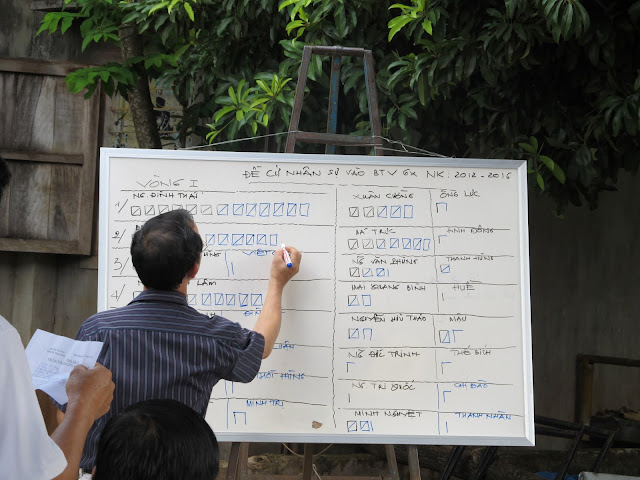 ĐỀ CỬ NHÂN SỰ VÀO BTV GX NK: 2012-2016
VÒNG I
1/ NG. ĐÌNH THÁI
2/
3/ HÙNG VIỆT
4/ LÂM
MINH TRÍ
XUÂN CƯỜNG ÔNG LỰC
BÁ TRỰC ANH ĐÔNG
NG VĂN PHÙNG THANH HÙNG
MAI QUANG BÌNH HUỀ
NGUYỄN HỮU THẢO MẬU
NG ĐỨC TRINH THẾ BÍCH
NG TRI QUỐC CHỊ ĐÀO
MINH NGUYỆT THANH NHÀN